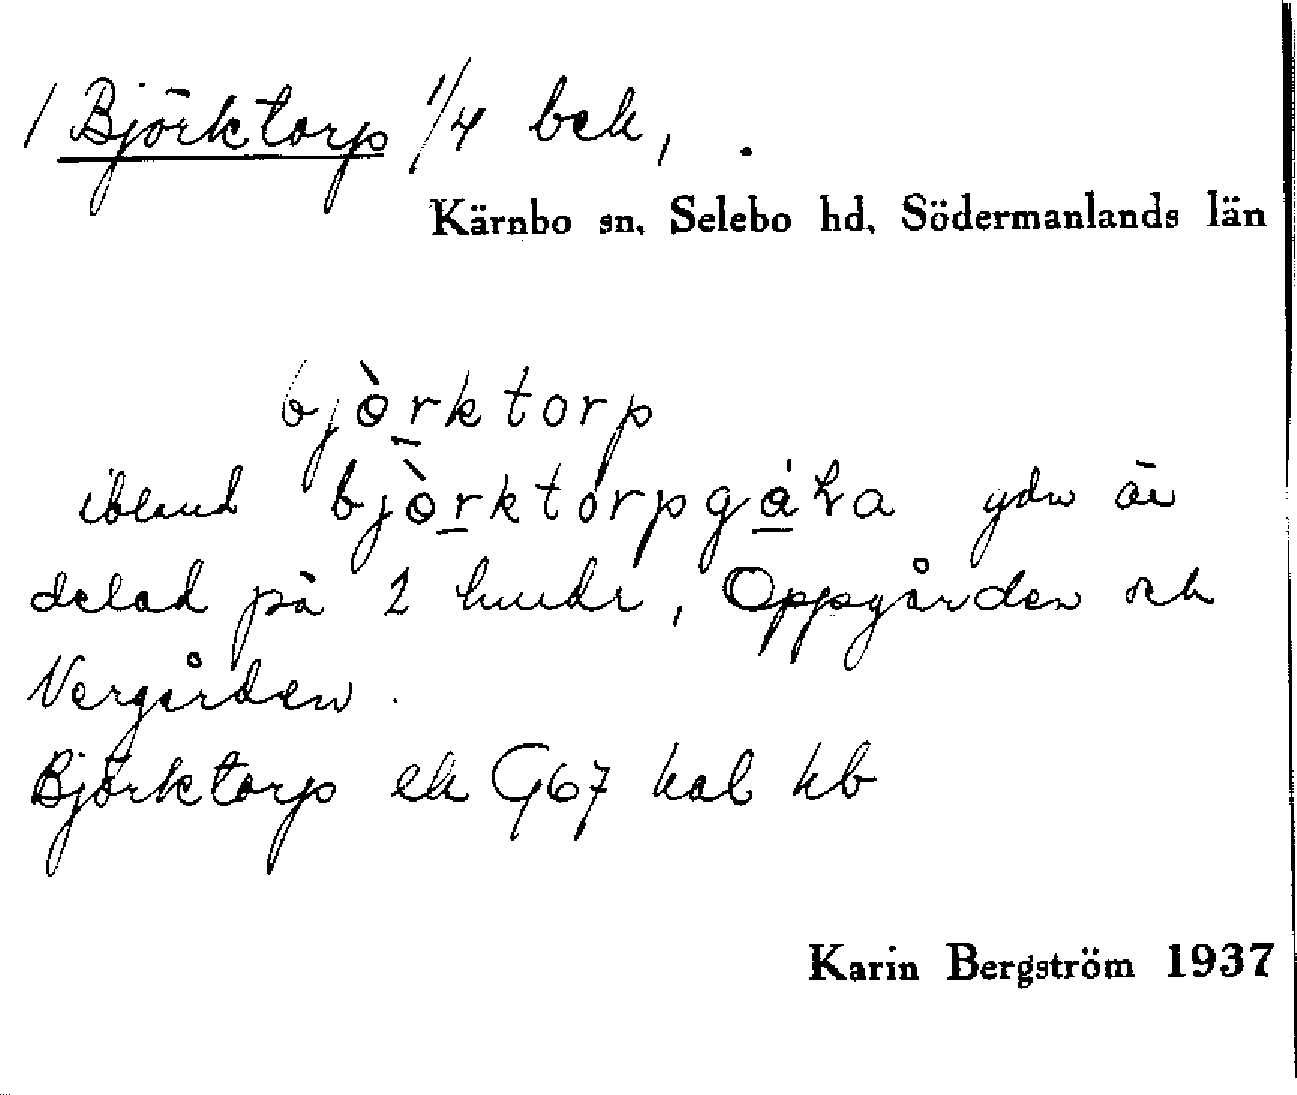 1 Björktorp 1/4 bek, .
Kärnbo sn, Selebo hd, Södermanlands län
bjòrktorp
ibland bjòrktorpgáɽa är
delad på 2 , Oppgården och
Vergården.
Björktorp ek G67 hab kb
Karin Bergström 1937